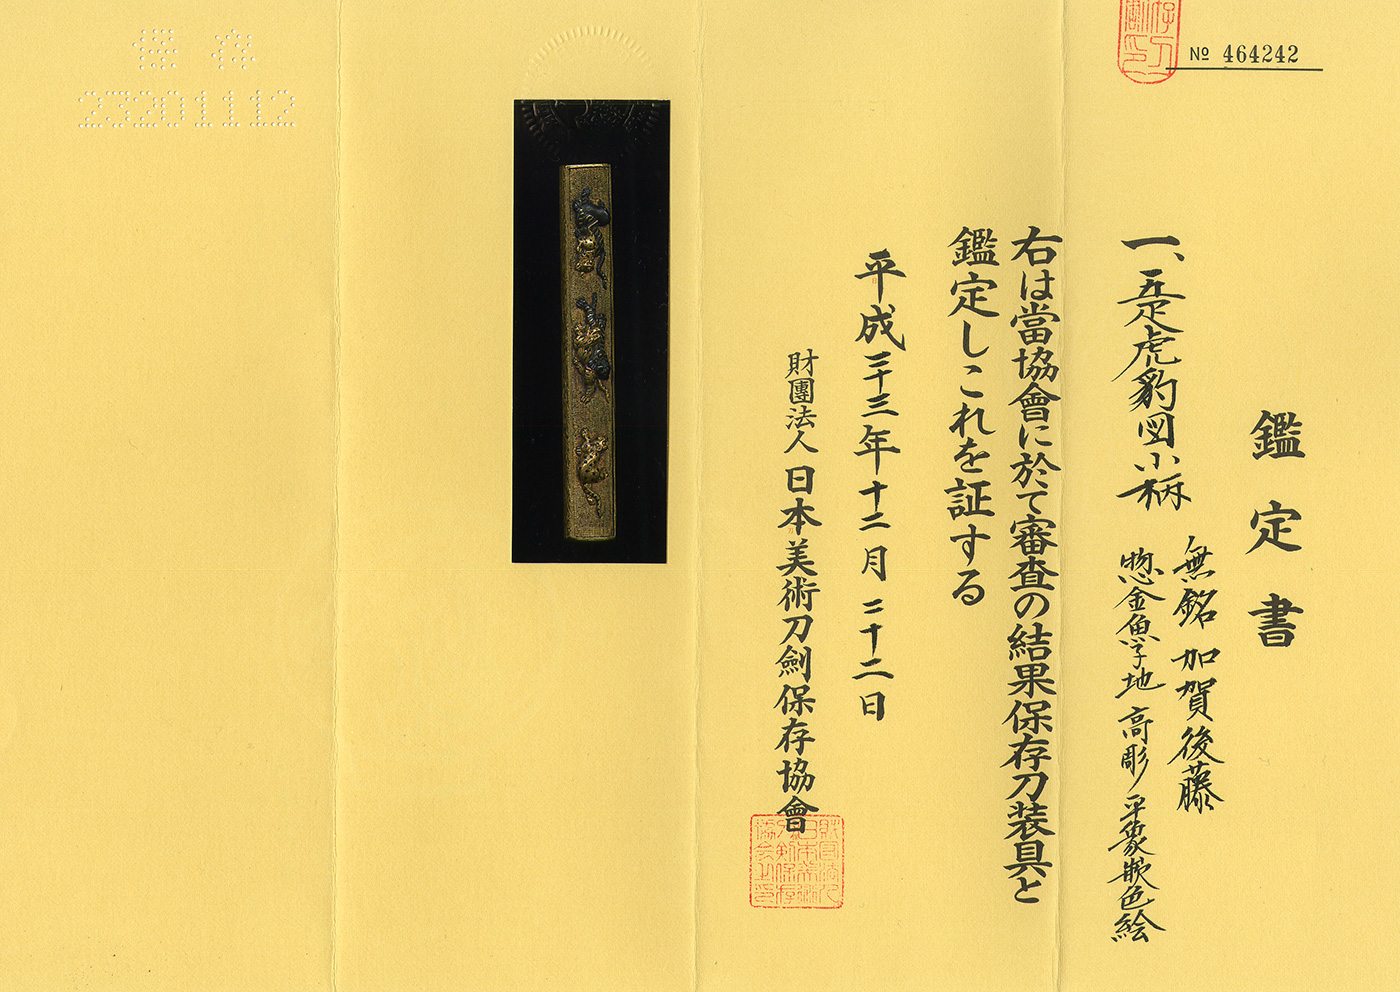 № 464242
鑑定書
一、五疋虎豹図小柄
無銘 加賀後藤
惣金魚子地 高彫 平象嵌色絵
右は當協會に於て審査の結果保存刀装具と
鑑定しこれを証する
平成二十三年十二月二十二日
財團法人 日本美術刀劍保存協會
保存
23201112